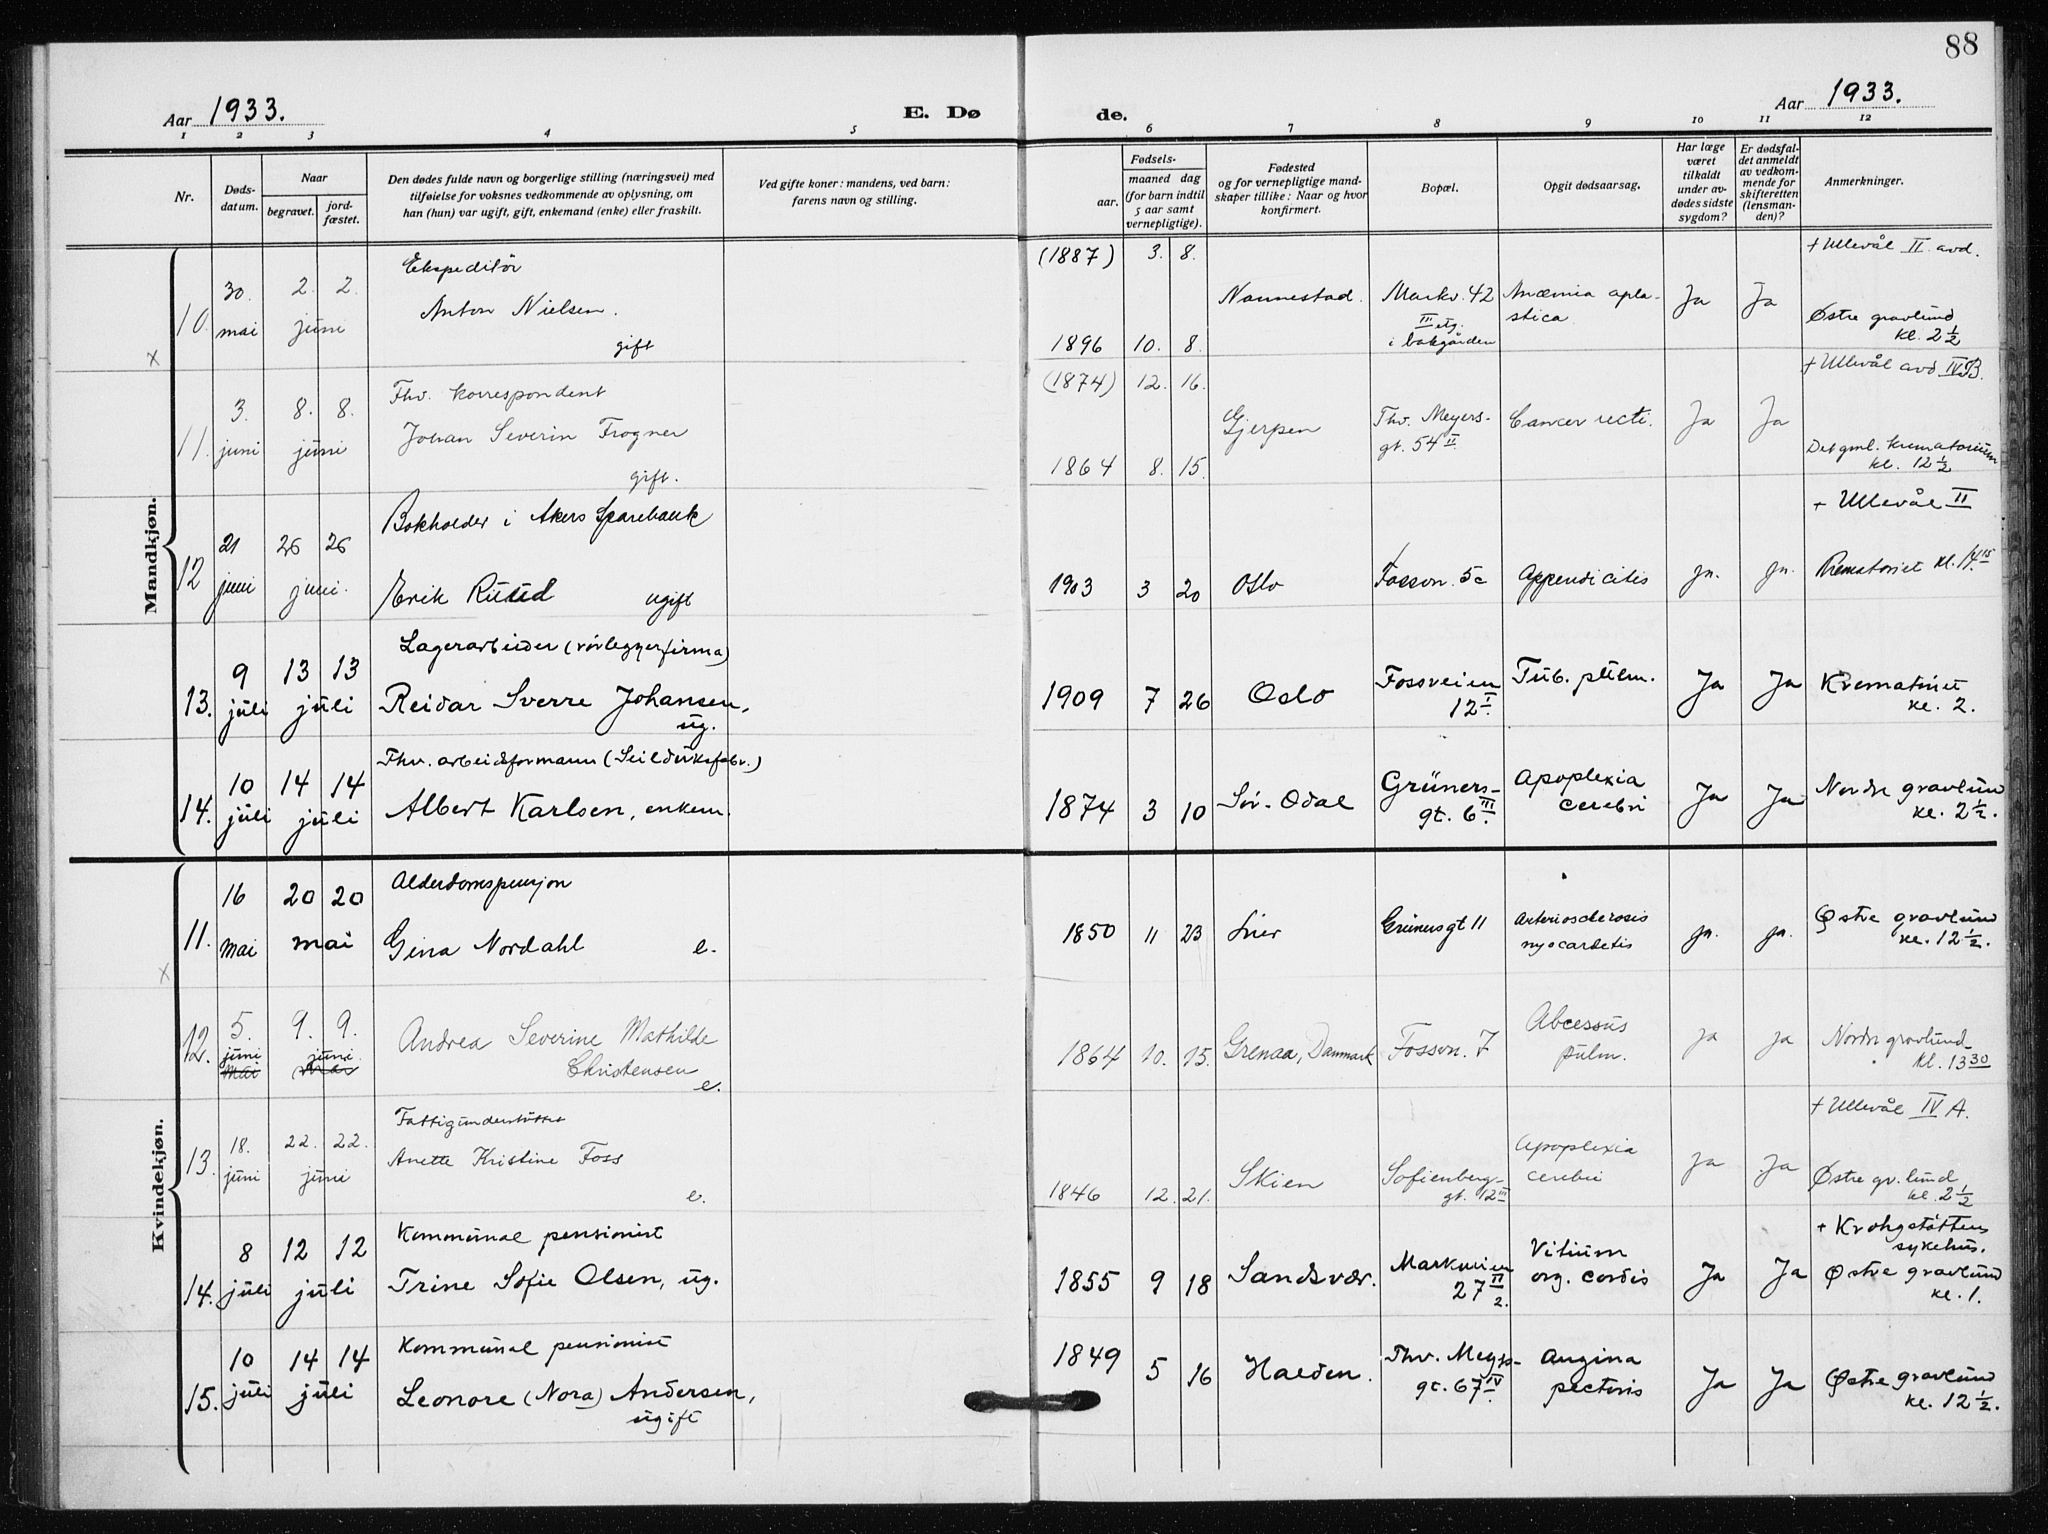 88
Aar 1933.
E. Dø de.
Aar 1933.
1 2 3 4 5 6 7 8 9 10 11 12
Nr.
Døds-
datum.
Naar
begravet.
jord-
fæstet.
Den dødes fulde navn og borgerlige stilling (næringsvei) med
tilføielse for voksnes vedkommende av oplysning, om
han (hun) var ugift, gift, enkemand (enke) eller fraskilt.
Ved gifte koner: mandens, ved barn:
farens navn og stilling.
Fødsels-
aar.
maaned dag
(for barn indtil
5 aar samt
vernepligtige).
Fødested
og for vernepligtige mand-
skaper tillike: Naar og hvor
konfirmert.
Bopæl.
Opgit dødsaarsag.
Har læge
været
tilkaldt
under av-
dødes sidste
sygdom?
Er dødsfal-
det anmeldt
av vedkom-
mende for
skifteretten
(lensman-
den)?
Anmerkninger.
Mandkjøn.
(1887) 3. 8. + Ullevål II. avd.
Ekspeditör
30. 2. 2. Nannestad. Markv. 42 Anæmia apla- Ja Ja
10. mai juni Anton Nielsen. III etg. stica Østre gravlund
x gift 1896 10. 8. i bakgården kl. 2 1/2
(1874) 12. 16. + Ullevål avd IV B.
Fhv. korrespondent
3. 8. 8. Gjerpen Thv. Meyers- Cancer recti. Ja Ja
11. juni juni Johan Severin Frogner gt. 54 II Det gml. krematorium
gift. 1864 8. 15. kl. 12 1/2
Bokholder i Akers Sparebank + Ullevål II
21 26 26
12 juni juni. Erik Ruud ugift 1903 3 20 Oslo Fossvn. 5c Appendicitis ja. ja. Krematoriet kl. 14.15
Lagerarbeider (rörleggerfirma)
9 13 13 Fossveien Tub. pulm. Krematoriet
13. juli juli Reidar Sverre Johansen, 1909 7 26 Oslo 12 I. Ja Ja kl. 2.
ug.
Fhv. arbeidsformann (Seilduksfabr.)
10 14 14 Grüners- Apoplexia Nordre gravlund
14. juli juli Albert Karlsen, enkem. 1874 3 10 Sör-Odal gt. 6 III. cerebri Ja Ja kl. 2 1/2.
Kvindekjøn.
Alderdomspensjon
16 20 20 Arteriosclerosis Østre gravlund
11. mai mai Gina Nordahl e. 1850 11 23 Lier Grünersgt 11 myocarditis ja. ja. kl. 12 1/2.
x
5. 9. 9. Andrea Severine Mathilde Abcessus
12. juni juni. Christensen 1864 10. 15. Grenaa, Danmark Fossvn. 7 pulm. ja ja Nordre gravlund
mai mai e. kl. 13 30
Fattigunderstöttet + Ullevål IV A.
18. 22. 22. Apoplexia
13. juni juni Anette Kristine Foss Skien Sofienberg- cerebri ja Ja Østre gr. lund
e. 1846 12. 21. gt. 12 III kl. 2 1/2
Kommunal pensionist + Krohgstöttens
sykehus.
8 12 12 Vitium
14. juli juli Trine Sofie Olsen, ug. 1855 9 18 Sandsvær. Markveien org. cordis Ja Ja Østre gravlund
27 II 2. kl. 1.
Kommunal pensionist
10 14 14 1849 Thv. Meyers- Angina
15. juli juli Leonore (Nora) Andersen, 5 16 Halden. gt. 67 IV. pectoris Ja Ja Østre gravlund
ugift kl. 12 1/2.